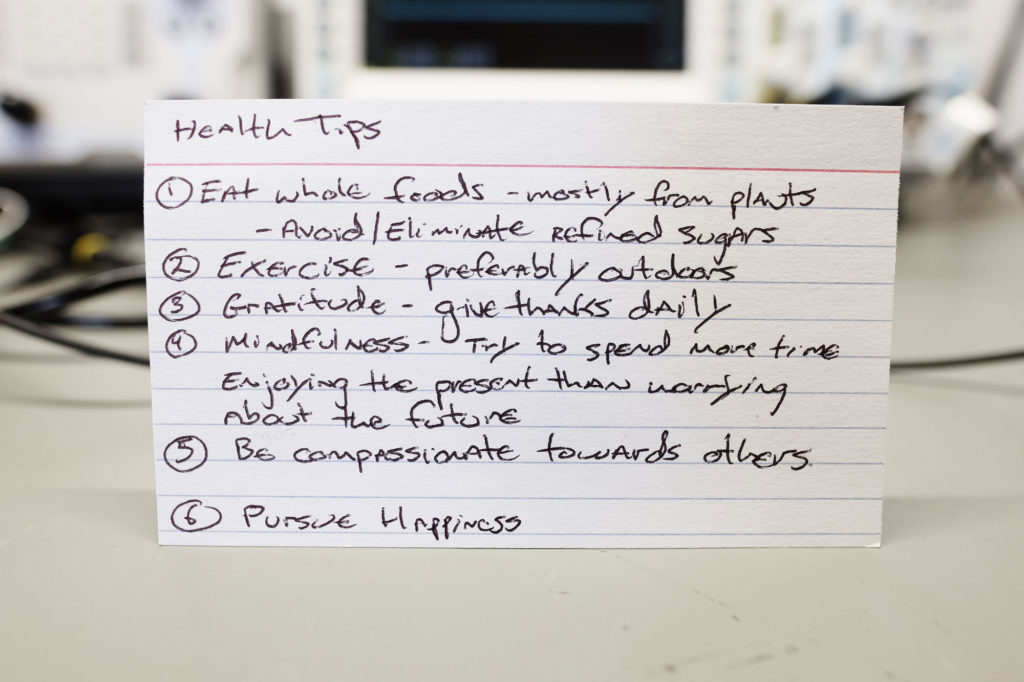 Health Tips
① Eat whole foods - mostly from plants
- Avoid/Eliminate refined sugars
② Exercise - preferably outdoors
③ Gratitude - give thanks daily
④ Mindfulness - Try to spend more time
Enjoying the present than worrying
about the future
⑤ Be compassionate towards others.
⑥ Pursue Happiness